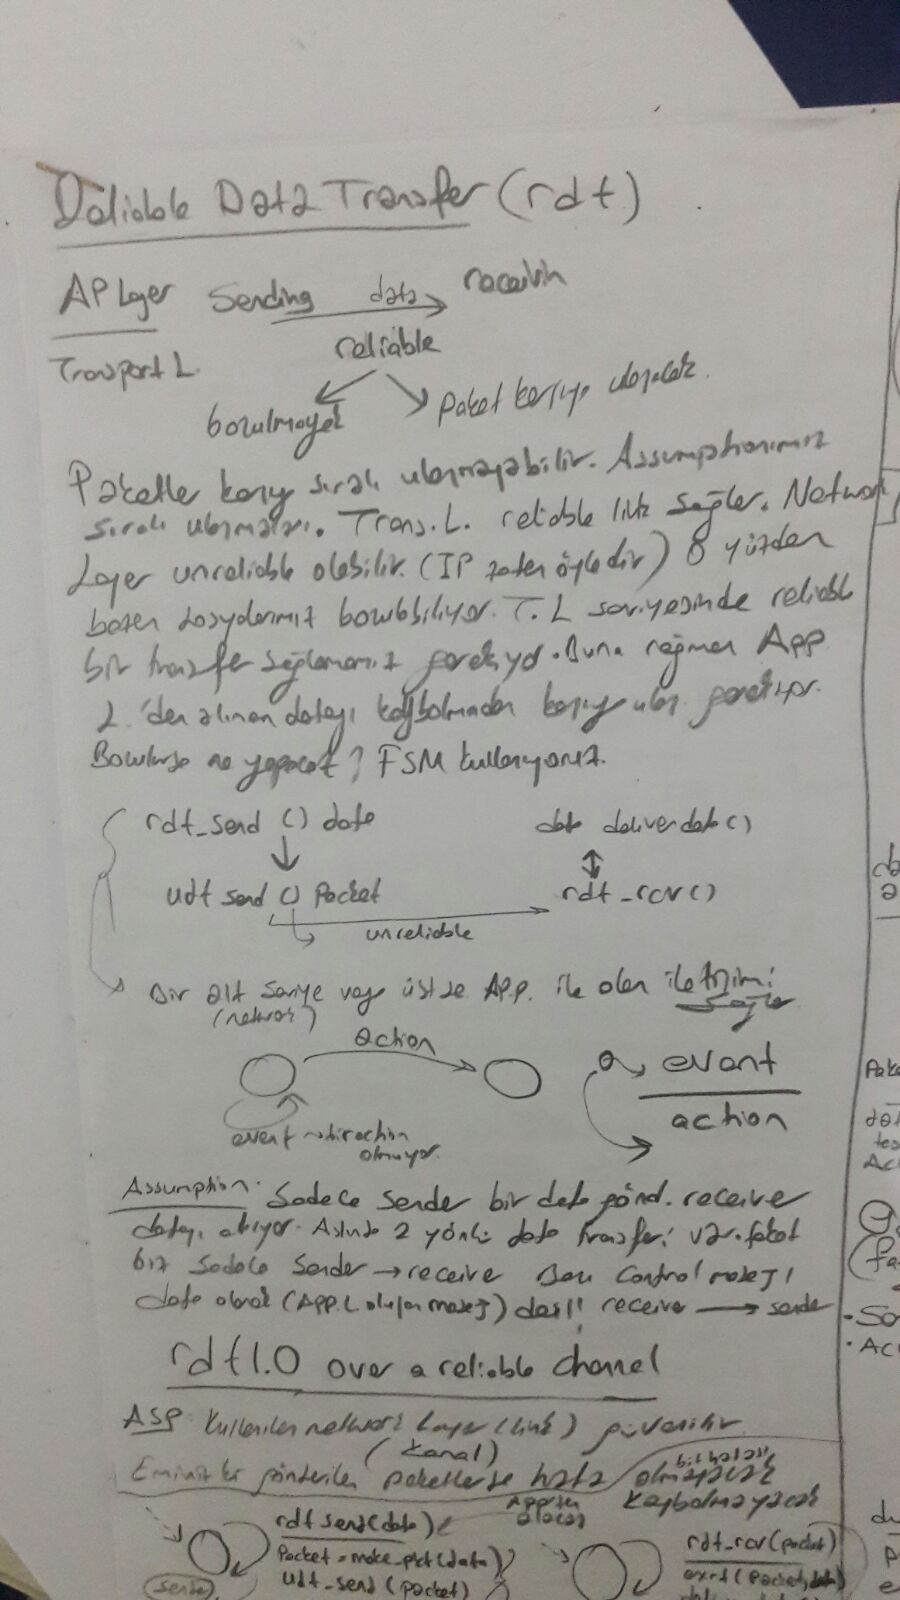 Reliable Data Transfer (rdt)
AP Layer Sending data receivin
Transport L. reliable
bozulmayacak paket karşıya ulaşacak.
Paketler karşıy sıralı ulaşmayabilir. Assumptionımız
sıralı ulaşmaları. Trans. L. reliable lık sağlar. Network
Layer unreliable olabilir. (IP zaten öyledir) O yüzden
bazen dosyalarımız bozulabiliyor. T. L seviyesinde reliable
bir transfer sağlamamız gerekiyor. Buna rağmen App
L.'den alınan datayı kaybolmadan karşıy ulaş. gerekiyor.
Bozulursa ne yapacak? FSM kullanıyoruz.
rdt_send () data data deliver data()
udt send () Packet rdt_rcv()
unreliable
Bir alt seviye veya üstte App. ile olan iletişimi
(network) sağlar
action
event
action
event
olmuyor.
Assumption: Sadece sender bir data gönd. receive
datayı alıyor. Aslında 2 yönlü data transferi var. fakat
biz sadece sender → receive Bazı Control mesajı
data olarak (App. L mesaj) değil receive → sender
rdt1.0 over a reliable channel
ASP: Kullanılan network Layer (link) güvenilir
(kanal)
bit hatası
Eminiz ki gönderilen paketlerse hata olmayacak
App ten kaybolmayacak
alacak
rdt send(data) rdt_rcv(packet)
Packet = make_pkt(data)
udt_send (packet)
sender